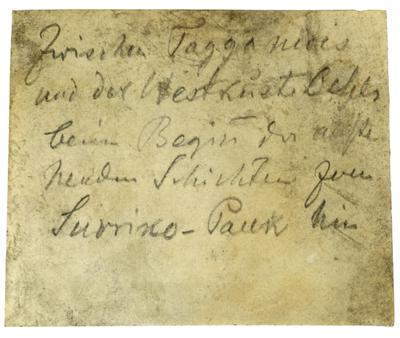 Zwischen Taggo nieis
und der Westküste Celebs
beim Begin̅ der aufste
henden Schichten zum
Surriko-Pauk hin